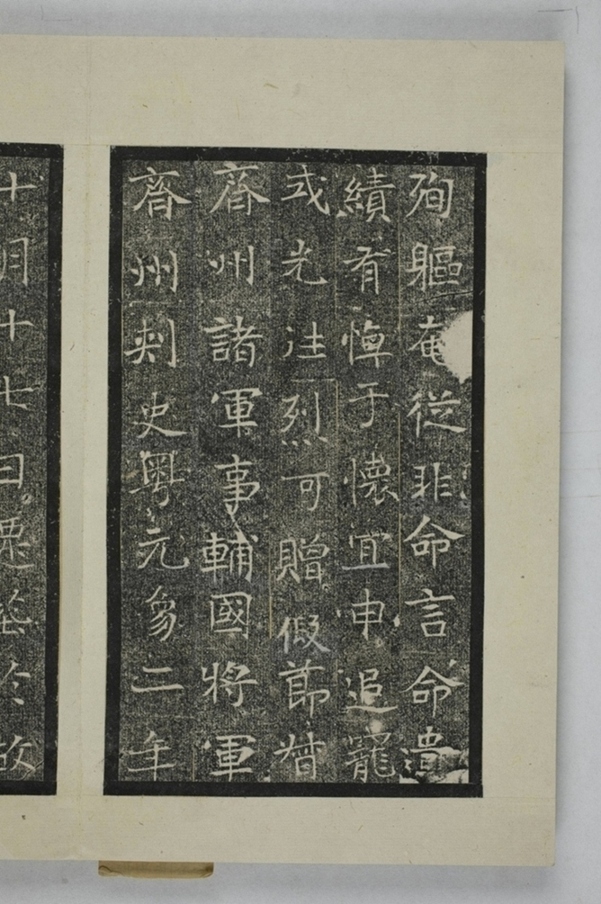 殉軀奄從非命言命遺
績有悼于懷宜申追寵
式光往烈可贈假節督
齊州諸軍事輔國將軍
齊州刺史粤元象二年
十月十七日遷葬於故